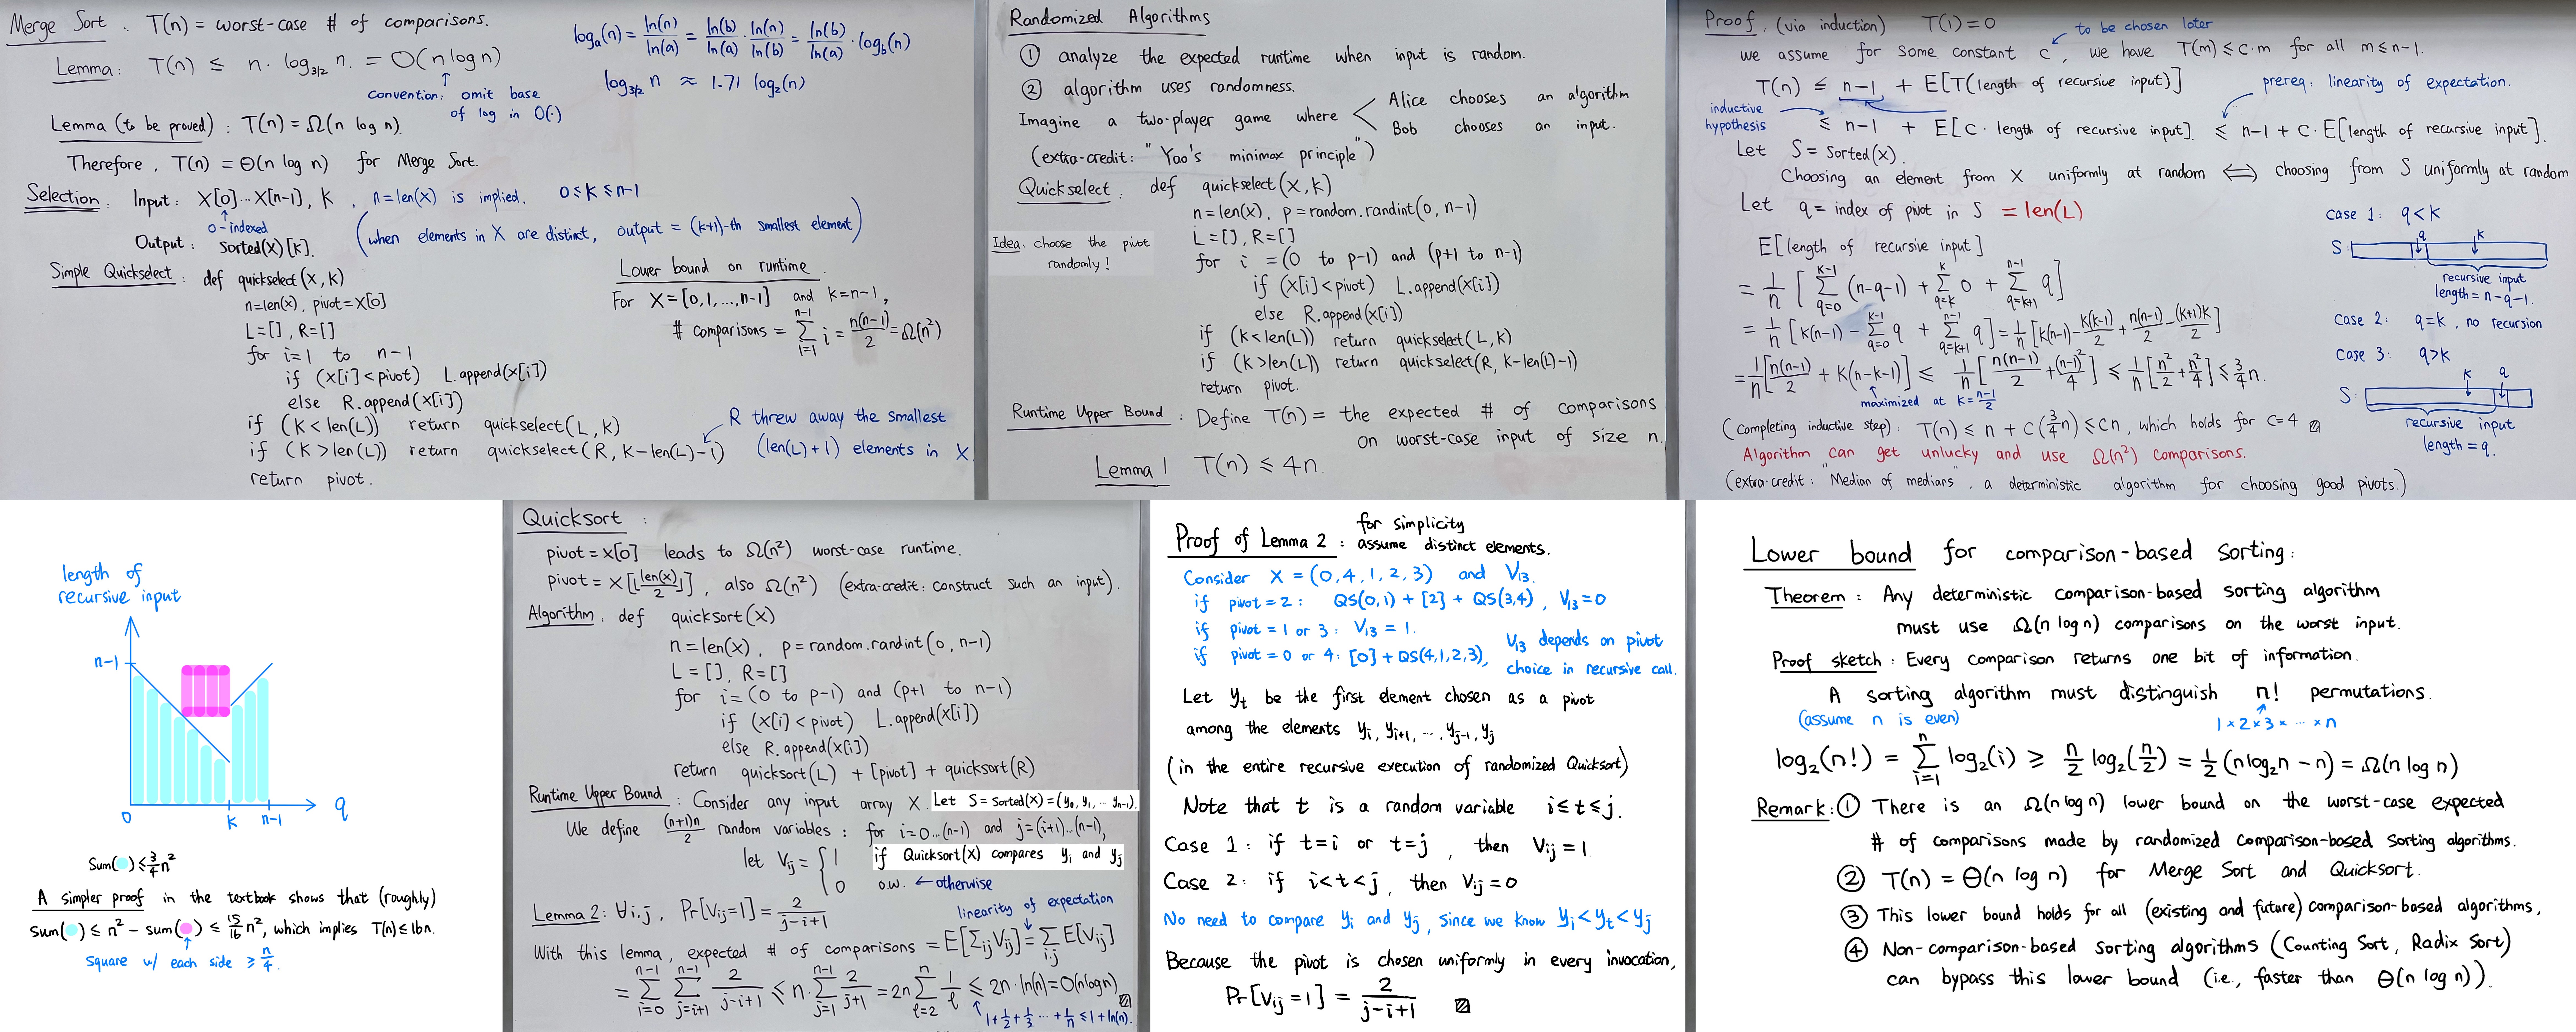 Merge Sort : T(n) = worst-case # of comparisons.
Lemma: T(n) ≤ n · log_{3/2} n. = O(n log n)
convention: omit base
of log in O(·)
log_a(n) = ln(n)/ln(a) = ln(b)/ln(a) · ln(n)/ln(b) = ln(b)/ln(a) · log_b(n)
log_{3/2} n ≈ 1.71 log_2(n)
Lemma (to be proved) : T(n) = Ω(n log n).
Therefore, T(n) = Θ(n log n) for Merge Sort.
Selection. Input: X[0]...X[n-1], K , n=len(x) is implied. 0≤K≤n-1
0-indexed
Output: sorted(x)[K]. (when elements in X are distinct, output = (k+1)-th smallest element)
Simple Quickselect: def quickselect(X, K)
n=len(x), pivot=X[0]
L=[], R=[]
for i=1 to n-1
if (X[i]<pivot) L.append(x[i])
else R.append(x[i])
if (K<len(L)) return quickselect(L, K)
if (K>len(L)) return quickselect(R, K-len(L)-1)
return pivot.
R threw away the smallest
(len(L)+1) elements in X
Lower bound on runtime
For X=[0,1,...,n-1] and K=n-1,
# comparisons = Σ_{i=1}^{n-1} i = n(n-1)/2 = Ω(n²)
Randomized Algorithms
① analyze the expected runtime when input is random.
② algorithm uses randomness.
Imagine a two-player game where < Alice chooses an algorithm
Bob chooses an input.
(extra-credit: "Yao's minimax principle")
Quickselect: def quickselect(X, K)
n=len(x). p=random.randint(0, n-1)
L=[], R=[]
Idea: choose the pivot
randomly!
for i =(0 to p-1) and (p+1 to n-1)
if (X[i]<pivot) L.append(x[i])
else R.append(x[i])
if (K<len(L)) return quickselect(L, K)
if (K>len(L)) return quickselect(R, K-len(L)-1)
return pivot.
Runtime Upper Bound : Define T(n) = the expected # of comparisons
on worst-case input of size n.
Lemma 1 T(n) ≤ 4n.
Proof. (via induction) T(1)=0
to be chosen later
we assume for some constant c, we have T(m) ≤ c·m for all m≤n-1.
T(n) ≤ n-1 + E[T(length of recursive input)]
prereq: linearity of expectation.
inductive
hypothesis
≤ n-1 + E[c · length of recursive input]. ≤ n-1 + c · E[length of recursive input].
Let S = sorted(x).
Choosing an element from X uniformly at random ⟺ choosing from S uniformly at random
Let q = index of pivot in S = len(L)
E[length of recursive input]
= 1/n [ Σ_{q=0}^{k-1} (n-q-1) + Σ_{q=k}^{k} 0 + Σ_{q=k+1}^{n-1} q ]
= 1/n [ K(n-1) - Σ_{q=0}^{k-1} q + Σ_{q=k+1}^{n-1} q ] = 1/n [ K(n-1) - K(k-1)/2 + n(n-1)/2 - (k+1)k/2 ]
= 1/n [ n(n-1)/2 + K(n-k-1) ] ≤ 1/n [ n(n-1)/2 + (n-1)²/4 ] ≤ 1/n [ n²/2 + n²/4 ] ≤ 3/4 n.
maximized at K = (n-1)/2
(Completing inductive step): T(n) ≤ n + c(3/4 n) ≤ cn, which holds for c=4
Algorithm can get unlucky and use Ω(n²) comparisons.
(extra-credit: "Median of medians", a deterministic algorithm for choosing good pivots.)
case 1: q<K
q K
S:
recursive input
length = n-q-1.
case 2: q=k, no recursion
case 3: q>k
K q
S:
recursive input
length = q.
length of
recursive input
n-1
0 K n-1 q
Sum( ) ≤ 3/4 n²
A simpler proof in the textbook shows that (roughly)
sum( ) ≤ n² - sum( ) ≤ 15/16 n², which implies T(n) ≤ 16n.
square w/ each side ≥ n/4.
Quicksort :
pivot = X[0] leads to Ω(n²) worst-case runtime.
pivot = X[⌊len(x)/2⌋], also Ω(n²) (extra-credit: construct such an input).
Algorithm. def quicksort(X)
n=len(x), p=random.randint(0, n-1)
L = [], R=[]
for i=(0 to p-1) and (p+1 to n-1)
if (X[i]<pivot) L.append(x[i])
else R.append(x[i])
return quicksort(L) + [pivot] + quicksort(R)
Runtime Upper Bound : Consider any input array X. Let S = sorted(x) = (y_0, y_1, ... y_{n-1}).
We define (n+1)n/2 random variables : for i=0...(n-1) and j=(i+1)...(n-1),
let V_ij = { 1 if Quicksort(X) compares y_i and y_j
0 o.w. ← otherwise
Lemma 2: ∀i,j, Pr[V_ij=1] = 2/(j-i+1)
linearity of expectation
With this lemma, expected # of comparisons = E[Σ_ij V_ij] = Σ_{i,j} E[V_ij]
= Σ_{i=0}^{n-1} Σ_{j=i+1}^{n-1} 2/(j-i+1) ≤ n · Σ_{j=1}^{n-1} 2/(j+1) = 2n Σ_{ℓ=2}^{n} 1/ℓ ≤ 2n · ln(n) = O(n log n)
1 + 1/2 + 1/3 ... + 1/n ≤ 1 + ln(n).
Proof of Lemma 2 : for simplicity
assume distinct elements.
Consider X = (0, 4, 1, 2, 3) and V_13.
if pivot = 2 : QS(0,1) + [2] + QS(3,4) , V_13=0
if pivot = 1 or 3 : V_13 = 1.
if pivot = 0 or 4: [0] + QS(4,1,2,3), V_13 depends on pivot
choice in recursive call.
Let y_t be the first element chosen as a pivot
among the elements y_i, y_{i+1}, ..., y_{j-1}, y_j
(in the entire recursive execution of randomized Quicksort)
Note that t is a random variable i≤t≤j.
Case 1 : if t=i or t=j , then V_ij = 1.
Case 2 : if i<t<j, then V_ij = 0
No need to compare y_i and y_j, since we know y_i < y_t < y_j
Because the pivot is chosen uniformly in every invocation,
Pr[V_ij = 1] = 2/(j-i+1)
Lower bound for comparison-based sorting:
Theorem : Any deterministic comparison-based sorting algorithm
must use Ω(n log n) comparisons on the worst input.
Proof sketch : Every comparison returns one bit of information.
A sorting algorithm must distinguish n! permutations.
(assume n is even) 1×2×3× ... ×n
log_2(n!) = Σ_{i=1}^{n} log_2(i) ≥ n/2 log_2(n/2) = 1/2 (n log_2 n - n) = Ω(n log n)
Remark: ① There is an Ω(n log n) lower bound on the worst-case expected
# of comparisons made by randomized comparison-based sorting algorithms.
② T(n) = Θ(n log n) for Merge Sort and Quicksort.
③ This lower bound holds for all (existing and future) comparison-based algorithms,
④ Non-comparison-based sorting algorithms (Counting Sort, Radix Sort)
can bypass this lower bound (i.e., faster than Θ(n log n)).